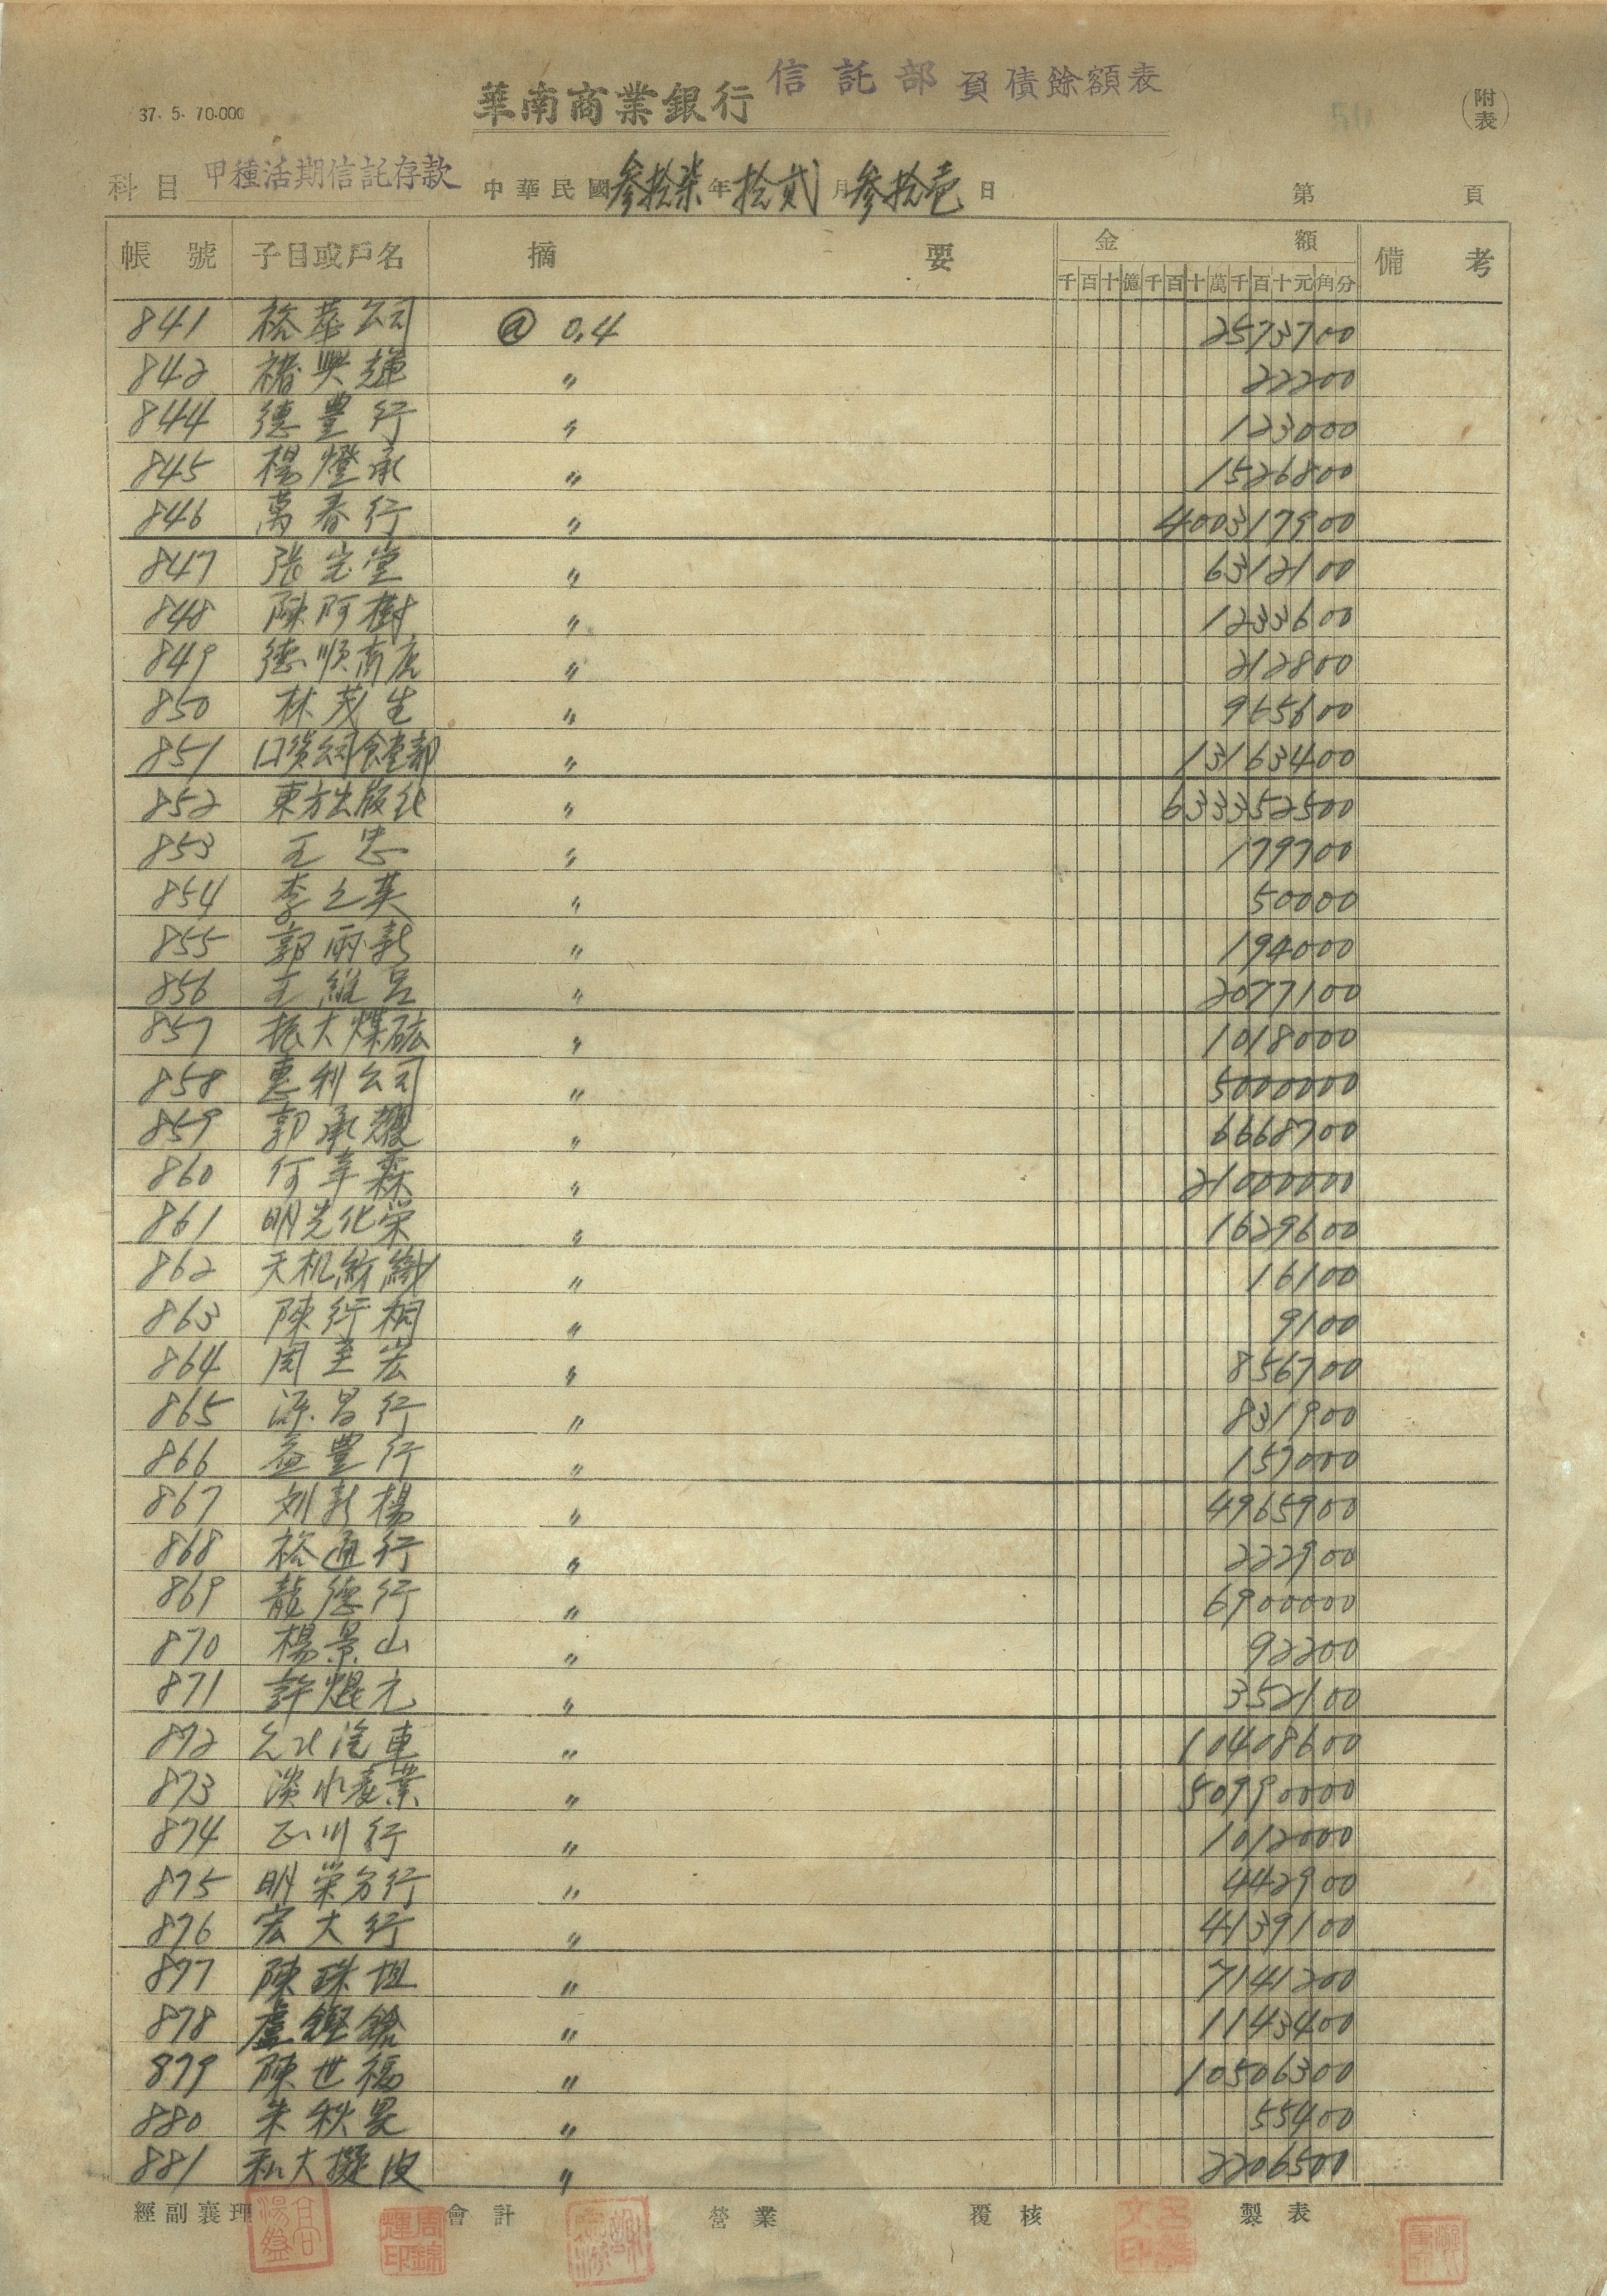 37. 5. 70.000
華南商業銀行 信託部 負債餘額表
(附表)
科目 甲種活期信託存款 中華民國參拾柒年拾貳月參拾壱日 第 頁
帳號 子目或戶名 摘要 金額 備考
千百十億千百十萬千百十元角分
841 裕華公司 @ 0.4 2573700
842 褚興輝 〃 22200
844 德豐行 〃 123000
845 楊燈承 〃 1526800
846 萬春行 〃 400317900
847 張宗堂 〃 6312100
848 陳阿樹 〃 1233600
849 德順商店 〃 212800
850 林茂生 〃 955600
851 食堂部 〃 13163400
852 東方出版社 〃 633352500
853 王忠 〃 179700
854 李之英 〃 50000
855 郭雨新 〃 194000
856 王維呂 〃 2077100
857 振大煤砿 〃 1018000
858 惠利公司 〃 5000000
859 郭承耀 〃 6668700
860 何幸霖 〃 21000000
861 明光化栄 〃 1629600
862 天机紡織 〃 16100
863 陳行桐 〃 9100
864 周圭宏 〃 856700
865 源昌行 〃 831900
866 益豐行 〃 157000
867 刘新楊 〃 4965900
868 裕通行 〃 222900
869 龍德行 〃 6900000
870 楊景山 〃 92200
871 許焜元 〃 352100
872 汽車 〃 10408600
873 淡水產業 〃 50990000
874 正川行 〃 1012000
875 明栄分行 〃 442900
876 宏大行 〃 4139100
877 陳珠 〃 7141200
878 盧 〃 1143400
879 陳世福 〃 10506300
880 朱秋 〃 55400
881 大 〃 2206500
經副襄理 會計 營業 覆核 製表
周錦輝印